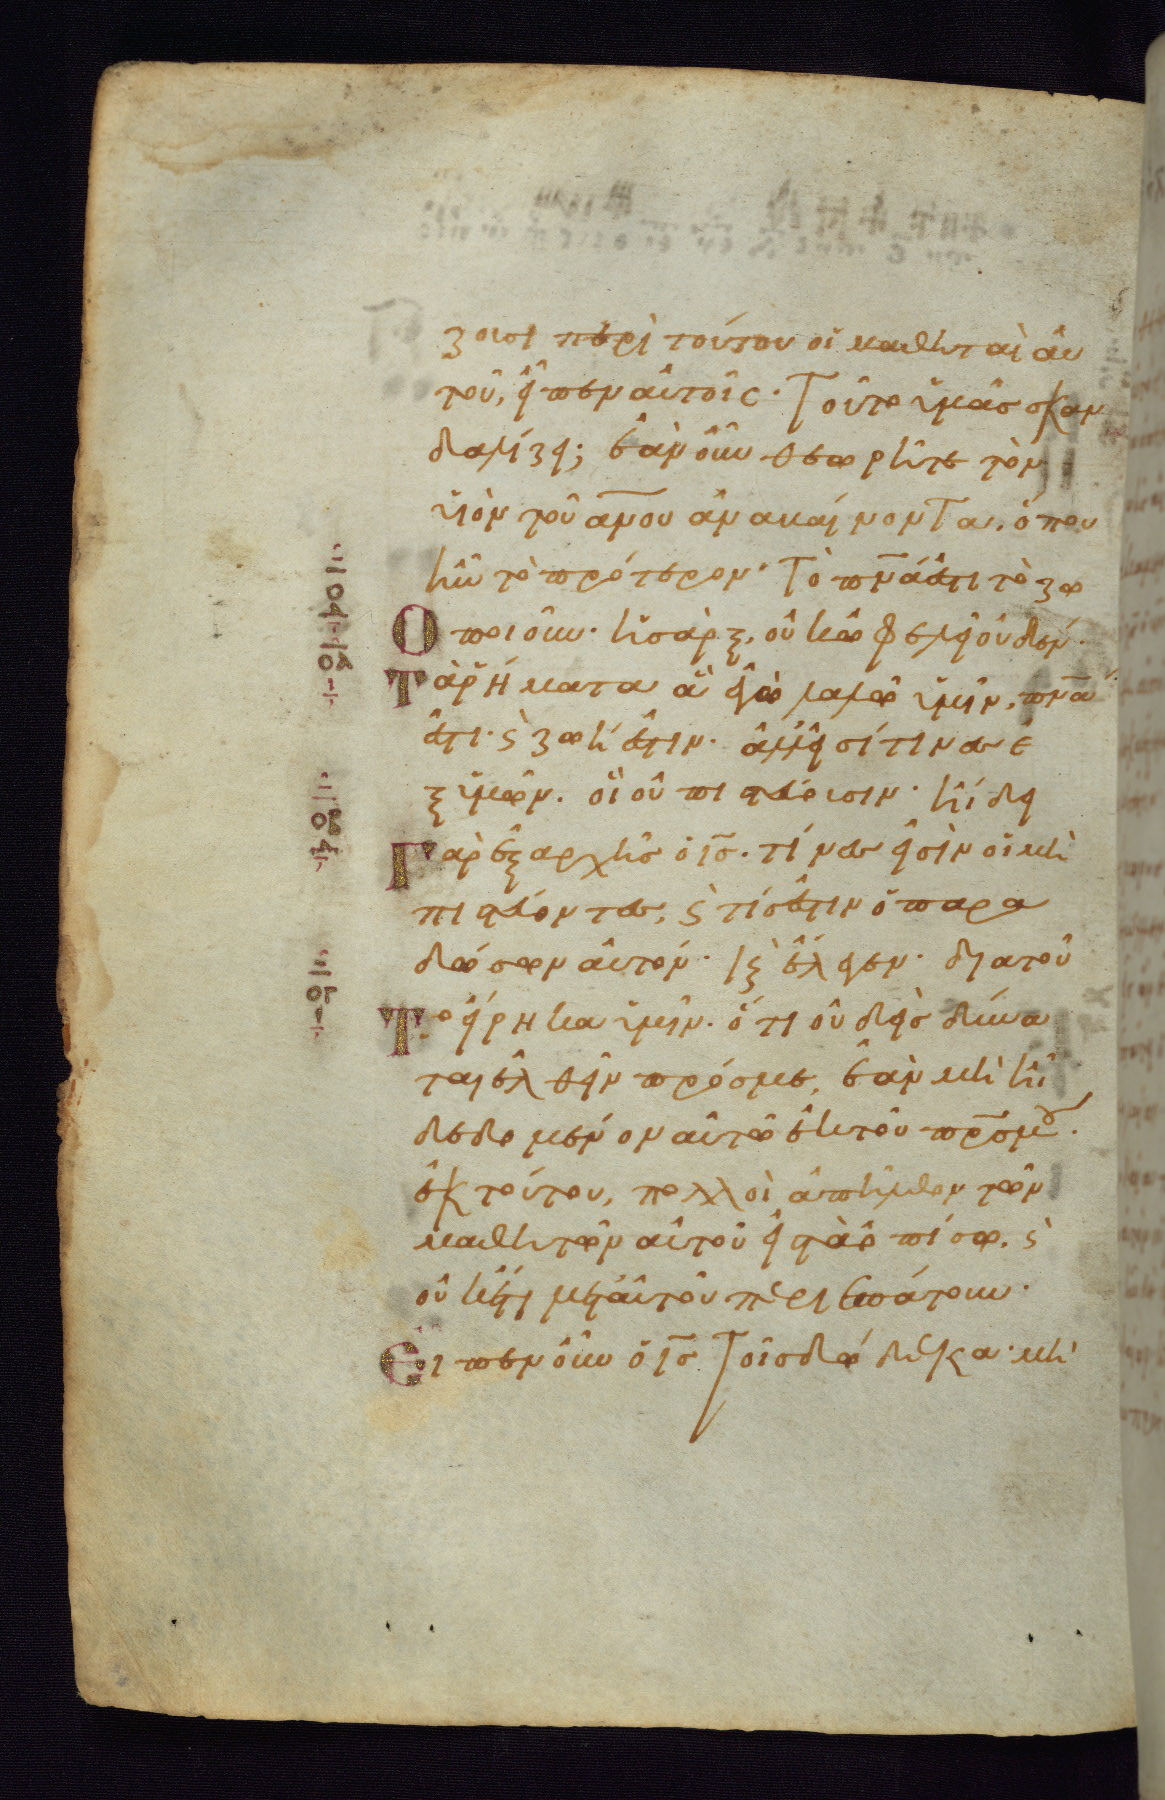 ζουσι περὶ τούτου οἱ μαθηταὶ αὐ
τοῦ, εἶπεν αὐτοῖς· Τοῦτο ὑμᾶς σκαν
δαλίζει; ἐὰν οὖν θεωρῆτε τὸν
υἱὸν τοῦ ἀν̅ου ἀναβαίνοντα, ὅπου
ἦν τὸ πρότερον· Τὸ πν̅ά ἐστι τὸ ζω
Οποιοῦν· ἡ σὰρξ, οὐκ ὠφελεῖ οὐδέν·
Τὰ ῥήματα ἃ ἐγὼ λαλῶ ὑμῖν, πν̅ά
ἐστι· ϗ ζωή ἐστιν· ἀλλ' εἰσί τινες ἐ
ξ ὑμῶν. οἳ οὐ πιστεύουσιν· ἤδει
Γὰρ ἐξ αρχῆς ὁ ι̅ς· τίνες εἰσὶν οἱ μὴ
πιστεύοντες, ϗ τίς ἐστιν ὁ παρα
δώσων αὐτόν· ϗ ἔλεγεν· διατοῦ
Το εἴρηκα ὑμῖν· ὅτι οὐδεὶς δύνα
ται ἐλθεῖν πρός με, ἐὰν μὴ ἦ
δεδομένον αὐτῶ ἐκ τοῦ πρ̅ς μου.
ἐκ τούτου, πολλοὶ ἀπῆλθον τῶν
μαθητῶν αὐτοῦ εἰς τὰ ὀπίσω, ϗ
οὐκέτι μετ' αὐτοῦ περιεπάτουν·
Εἶπεν οὖν ὁ ι̅ς Τοῖς δώδεκα· μὴ